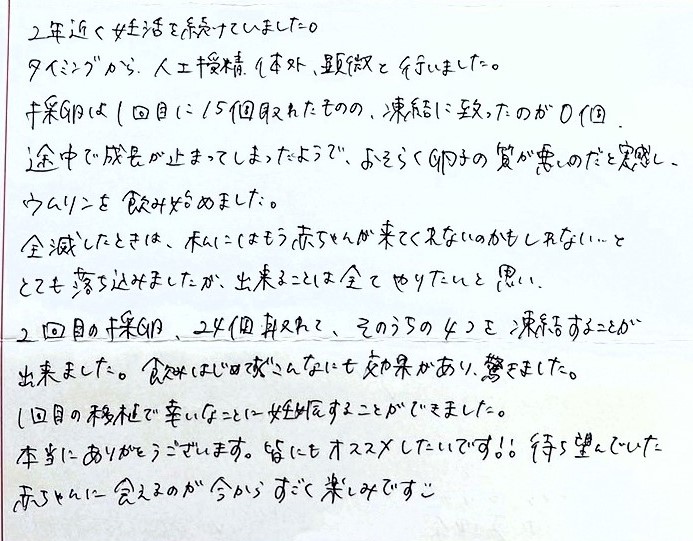 2年近く妊活を続けていました。
タイミングから、人工授精、体外、顕微と行いました。
採卵は1回目に15個取れたものの、凍結に致ったのが0個、
途中で成長が止まってしまったようで、おそらく卵子の質が悪いのだと実感し、
ウムリンを飲み始めました。
全滅したときは、私にはもう赤ちゃんが来てくれないのかもしれない…と
とても落ち込みましたが、出来ることは全てやりたいと思い、
2回目の採卵、24個取れて、そのうちの4つを凍結することが
出来ました。飲みはじめてすぐこんなにも効果があり、驚きました。
1回目の移植で幸いなことに妊娠することができました。
本当にありがとうございます。皆にもオススメしたいです!! 待ち望んでいた
赤ちゃんに会えるのが今からすごく楽しみです